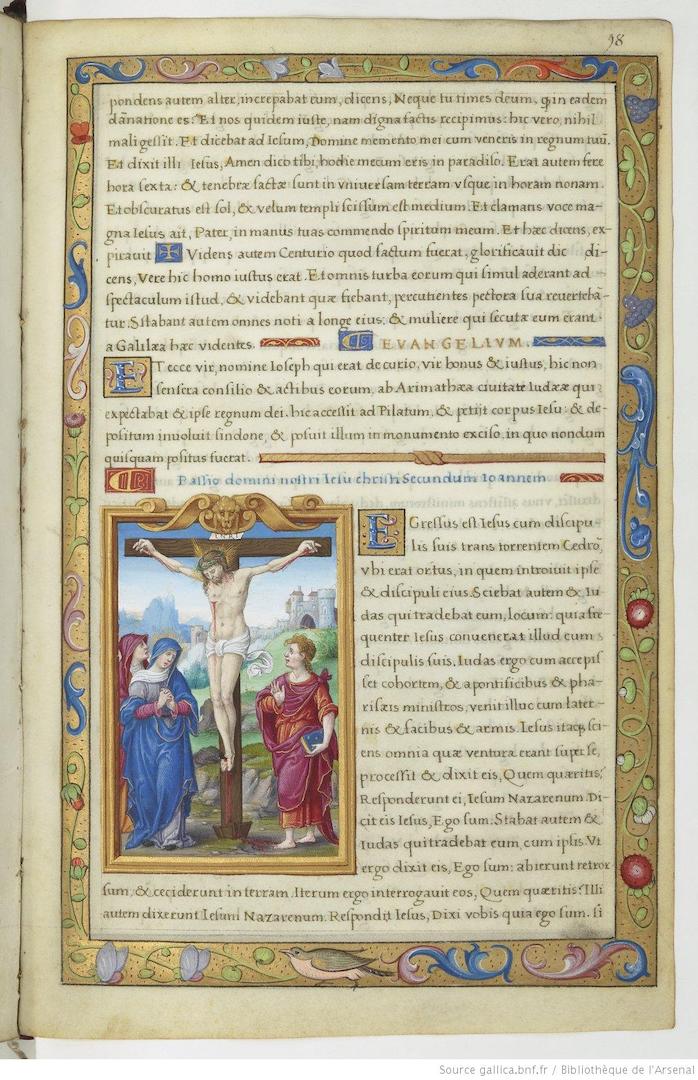 98
pondens autem alter, increpabat eum, dicens, Neque tu times deum, qin eadem
dānatione es: Et nos quidem iuste, nam digna factis recipimus: hic vero, nihil
mali gessit. Et dicebat ad Iesum, Domine memento mei cum veneris in regnum tuū.
Et dixit illi Iesus, Amen dico tibi, hodie mecum eris in paradiso. Erat autem fere
hora sexta: & tenebræ factæ sunt in vniversam terram vsque in horam nonam.
Et obscuratus est sol, & velum templi scissum est medium. Et clamans voce ma-
gna Iesus ait, Pater, in manus tuas commendo spiritum meum. Et hæc dicens, ex-
piravit Videns autem Centurio quod factum fuerat, glorificavit dic di-
cens, Vere hic homo iustus erat. Et omnis turba eorum qui simul aderant ad
spectaculum istud, & videbant quæ fiebant, percutientes pectora sua revertebā-
tur. Stabant autem omnes noti a longe eius: & muliere qui secutæ eum erant
a Galilæa hæc videntes. EVANGELIVM.
ET ecce vir, nomine Ioseph qui erat decurio, vir bonus & iustus, hic non
sensera consilio & actibus eorum, ab Arimathæa civitate Iudææ qui
expectabat & ipse regnum dei. hic accessit ad Pilatum, & petijt corpus Iesu: & de-
positum involuit sindone, & posuit illum in monumento exciso, in quo nondum
quisquam positus fuerat.
Passio domini nostri Iesu christi Secundum Ioannem
EGressus est Iesus cum discipu-
lis suis trans torrentem Cedrō,
vbi erat ortus, in quem introivit ipse
& discipuli eius Sciebat autem & Iu
das qui tradebat eum, locum: quia fre
quenter Iesus convenerat illud cum
discipulis suis. Iudas ergo cum accepis
set cohortem, & a pontificibus & pha-
risæis ministros, venit illuc cum later-
nis & facibus & armis. Iesus itaq sci-
ens omnia quæ ventura erant super se,
processit & dixit eis, Quem quæritis?
Responderunt ei, Iesum Nazarenum. Di-
cit eis Iesus, Ego sum. Stabat autem &
Iudas qui tradebat eum, cum ipsis. Vt
ergo dixit eis, Ego sum: abierunt retror
sum, & ceciderunt in terram. Iterum ergo interrogavit eos, Quem quæritis? Illi
autem dixerunt Iesum Nazarenum. Respondit Iesus, Dixi vobis quia ego sum. si
INRI
Source gallica.bnf.fr / Bibliothèque de l'Arsenal